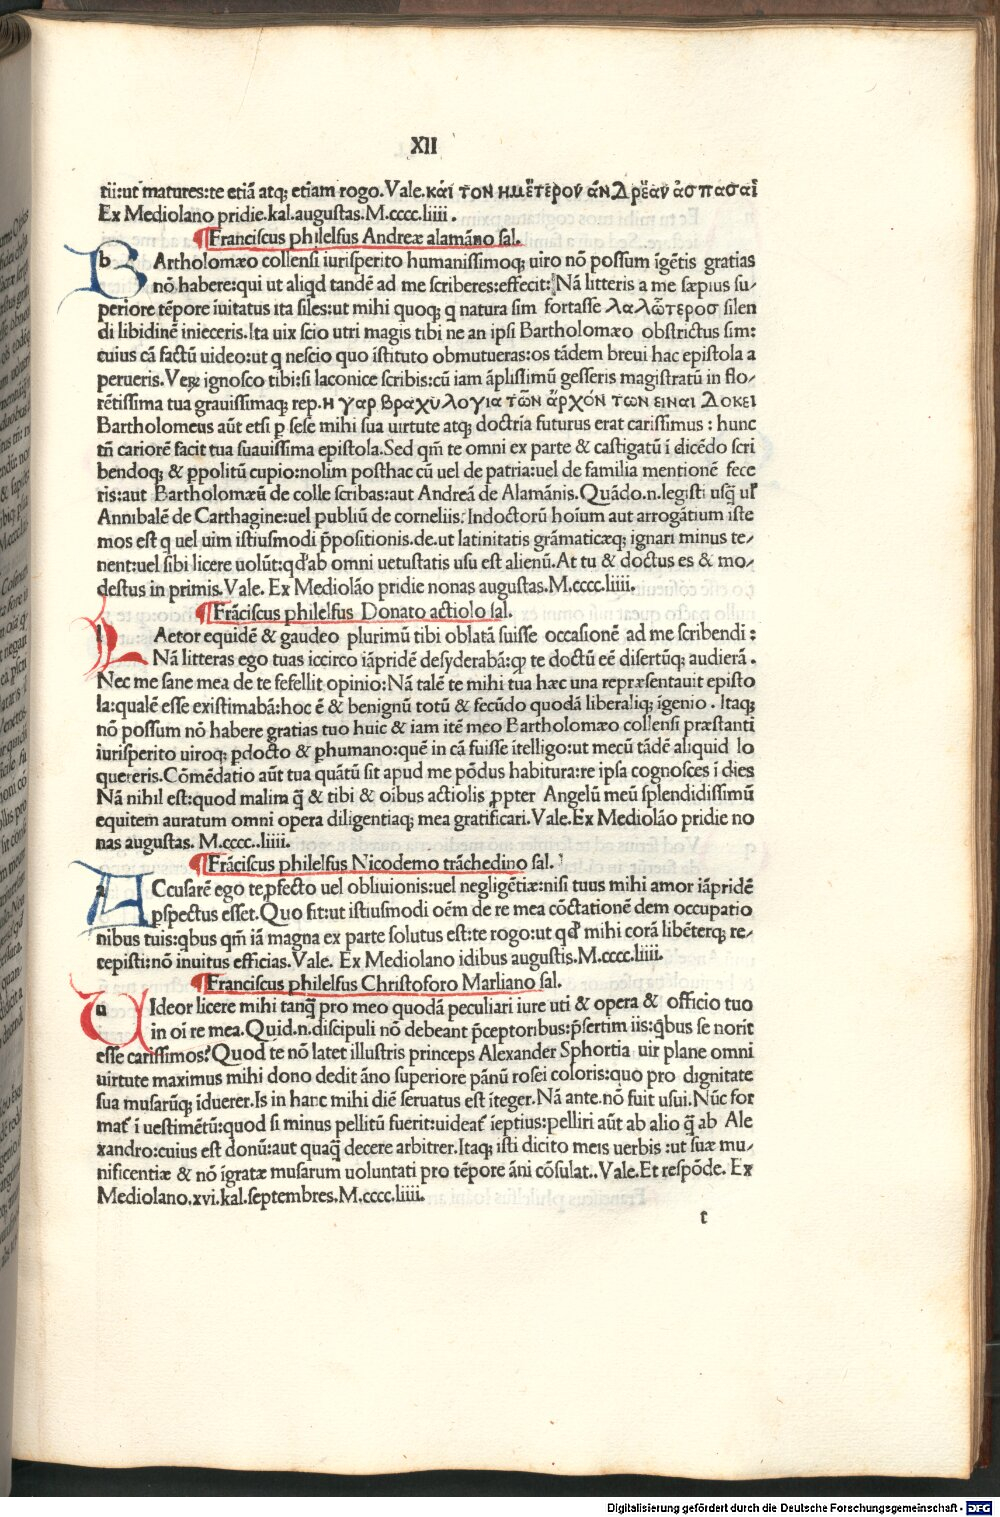 XII
tii:ut matures:te etiã atq; etiam rogo.Vale.καί τον ημέτερον άνδρέαν ἀσπασαί
Ex Mediolano pridie.kal.augustas.M.cccc.liiii.
¶Franciscus philelfus Andreæ alamãno sal.
bArtholomæo collensi iurisperito humanissimoq; uiro nõ possum ĩgẽtis gratias
nõ habere:qui ut aliqd tandẽ ad me scriberes:effecit:Nã litteris a me sæpius su/
periore tẽpore iuitatus ita siles:ut mihi quoq; q natura sim fortasse λαλώτεροσ silen
di libidinẽ inieceris.Ita uix scio utri magis tibi ne an ipsi Bartholomæo obstrictus sim:
cuius cã factũ uideo:ut q nescio quo ĩstituto obmutueras:os tãdem breui hac epistola a
perueris.Veꝝ ignosco tibi:si laconice scribis:cũ iam ãplissimũ gesseris magistratũ in flo/
rẽtissima tua grauissimaq; rep.η γαρ βραχυλογια τῶν ἄρχόν των ειναι δοκει
Bartholomeus aũt etsi p sese mihi sua uirtute atq; doctrĩa futurus erat carissimus : hunc
tñ cariorẽ facit tua suauissima epistola.Sed qm̃ te omni ex parte & castigatũ ĩ dicẽdo scri
bendoq; & ꝑpolitũ cupio:nolim posthac cũ uel de patria:uel de familia mentionẽ fece
ris:aut Bartholomæũ de colle scribas:aut Andreã de Alamãnis.Quãdo.n.legisti usq̃ ul̃
Annibalẽ de Carthagine:uel publiũ de corneliis.Indoctorũ hoĩum aut arrogãtium iste
mos est q uel uim istiusmodi p̃positionis.de.ut latinitatis grãmaticæq; ignari minus te/
nent:uel sibi licere uolũt:qd̃ ab omni uetustatis usu est alienũ.At tu & doctus es & mo/
destus in primis.Vale. Ex Mediolão pridie nonas augustas.M.cccc.liiii.
¶Frãciscus philelfus Donato actiolo sal.
lAetor equidẽ & gaudeo plurimũ tibi oblatã fuisse occasionẽ ad me scribendi :
Nã litteras ego tuas iccirco iãpridẽ desyderabã:ꝙ te doctũ eẽ disertũq; audierã .
Nec me sane mea de te fefellit opinio:Nã talẽ te mihi tua hæc una repræsentauit episto
la:qualẽ esse existimabã:hoc ẽ & benignũ totũ & fecũdo quodã liberaliq; ĩgenio . Itaq;
nõ possum nõ habere gratias tuo huic & iam itẽ meo Bartholomæo collensi præstanti
iurisperito uiroq; ꝑdocto & ꝑhumano:quẽ in cã fuisse ĩtelligo:ut mecũ tãdẽ aliquid lo
quereris.Cõmẽdatio aũt tua quãtũ sit apud me põdus habitura:re ipsa cognosces ĩ dies
Nã nihil est:quod malim q̃ & tibi & oĩbus actiolis ꝓpter Angelũ meũ splendidissimũ
equitem auratum omni opera diligentiaq; mea gratificari.Vale.Ex Mediolão pridie no
nas augustas. M.cccc.liiii.
¶Frãciscus philelfus Nicodemo trãchedino sal.
aCcusarẽ ego te ꝓfecto uel obliuionis:uel negligẽtiæ:nisi tuus mihi amor iãpridẽ
ꝑspectus esset.Quo fit:ut istiusmodi oẽm de re mea cõctationẽ dem occupatio
nibus tuis:qbus qm̃ iã magna ex parte solutus est:te rogo:ut qd̃ mihi corã libẽterq; re/
cepisti:nõ inuitus efficias.Vale. Ex Mediolano idibus augustis.M.cccc.liiii.
¶Franciscus philelfus Christoforo Marliano sal.
uIdeor licere mihi tanq̃ pro meo quodã peculiari iure uti & opera & officio tuo
in oĩ re mea.Quid.n.discipuli nõ debeant p̃ceptoribus:p̃sertim iis:qbus se norit
esse carissimos?Quod te nõ latet illustris princeps Alexander Sphortia uir plane omni
uirtute maximus mihi dono dedit ãno superiore pãnũ rosei coloris:quo pro dignitate
sua musarũq; ĩduerer.Is in hanc mihi diẽ seruatus est ĩteger.Nã ante.nõ fuit usui.Nũc for
mat̃ ĩ uestimẽtũ:quod si minus pellitũ fuerit:uideat̃ ĩeptius:pelliri aũt ab alio q̃ ab Ale
xandro:cuius est donũ:aut quaq̃ decere arbitrer.Itaq; isti dicito meis uerbis :ut suæ mu/
nificentiæ & nõ ĩgratæ musarum uoluntati pro tẽpore ãni cõsulat..Vale.Et respõde. Ex
Mediolano.xvi.kal.septembres.M.cccc.liiii.
t
Digitalisierung gefördert durch die Deutsche Forschungsgemeinschaft - DFG